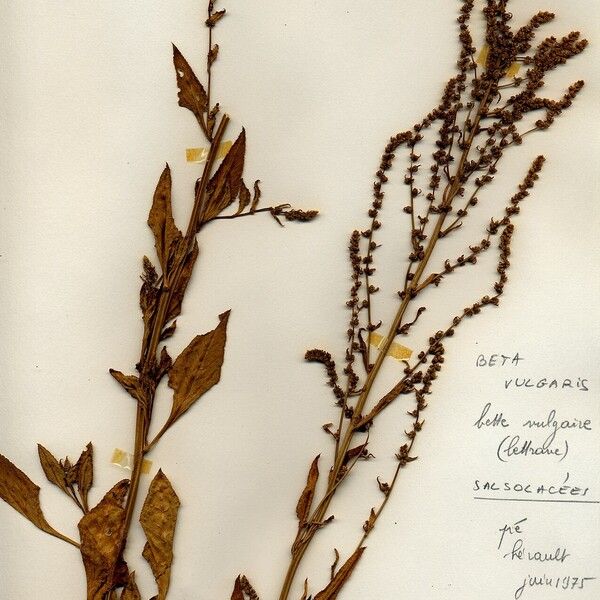 BETA
VULGARIS
bette vulgaire
(bettrave)
SALSOLACÉES
pré
hérault
juin 1975